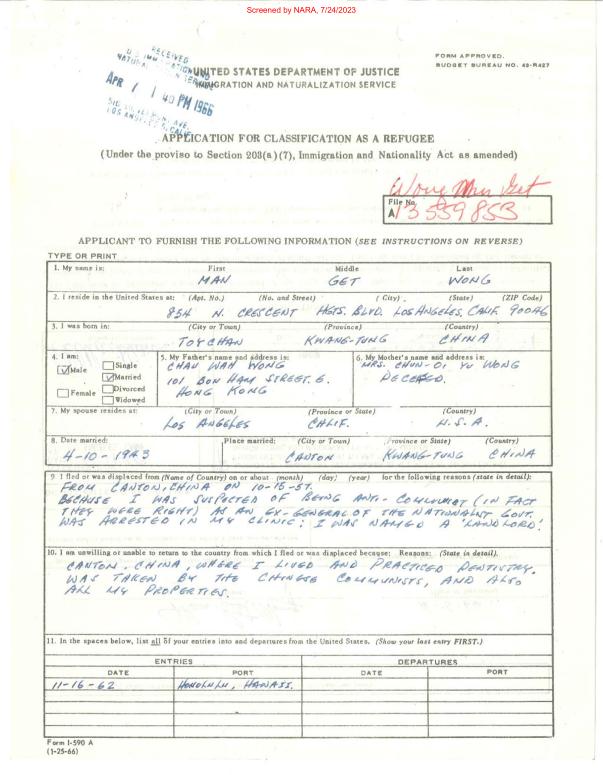 Screened by NARA, 7/24/2023
FORM APPROVED.
BUDGET BUREAU NO. 43-R427
RECEIVED
APR 1 1 40 PM 1966
LOS ANGELES, CALIF.
UNITED STATES DEPARTMENT OF JUSTICE
IMMIGRATION AND NATURALIZATION SERVICE
APPLICATION FOR CLASSIFICATION AS A REFUGEE
(Under the proviso to Section 203(a)(7), Immigration and Nationality Act as amended)
Wong Man Get
File No.
A 13 559 853
APPLICANT TO FURNISH THE FOLLOWING INFORMATION (SEE INSTRUCTIONS ON REVERSE)
TYPE OR PRINT
1. My name is: First Middle Last
MAN GET WONG
2. I reside in the United States at: (Apt. No.) (No. and Street) (City) (State) (ZIP Code)
854 N. CRESCENT HGTS. BLVD. LOS ANGELES, CALIF. 90046
3. I was born in: (City or Town) (Province) (Country)
TOYCHAN KWANG-TUNG CHINA
4. I am:
Male Female
Single
Married
Divorced
Widowed
5. My Father's name and address is:
CHAN WAH WONG
101 BON HAM STREET. E.
HONG KONG
6. My Mother's name and address is:
MRS. CHUN-OI YU WONG
DECEASED.
7. My spouse resides at: (City or Town) (Province or State) (Country)
LOS ANGELES CALIF. U.S.A.
8. Date married: Place married: (City or Town) (Province or State) (Country)
4-10-1943 CANTON KWANG-TUNG CHINA
9. I fled or was displaced from (Name of Country) on or about (month) (day) (year) for the following reasons (state in detail):
FROM CANTON, CHINA ON 10-15-57.
BECAUSE I WAS SUSPECTED OF BEING ANTI-COMMUNIST (IN FACT
THEY WERE RIGHT) AS AN EX-GENERAL OF THE NATIONALIST GOVT.
WAS ARRESTED IN MY CLINIC; I WAS NAMED A 'LANDLORD'.
10. I am unwilling or unable to return to the country from which I fled or was displaced because: Reasons: (State in detail).
CANTON, CHINA, WHERE I LIVED AND PRACTICED DENTISTRY.
WAS TAKEN BY THE CHINESE COMMUNISTS, AND ALSO
ALL MY PROPERTIES.
11. In the spaces below, list all of your entries into and departures from the United States. (Show your last entry FIRST.)
ENTRIES DEPARTURES
DATE PORT DATE PORT
11-16-62 HONOLULU, HAWAII.
Form I-590 A
(1-25-66)